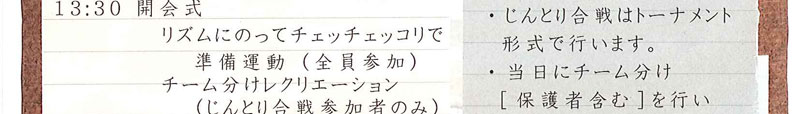 13:30 開会式
リズムにのってチェッチェッコリで
準備運動(全員参加)
チーム分けレクリエーション
(じんとり合戦参加者のみ)
・じんとり合戦はトーナメント
形式で行います。
・当日にチーム分け
[保護者含む]を行い